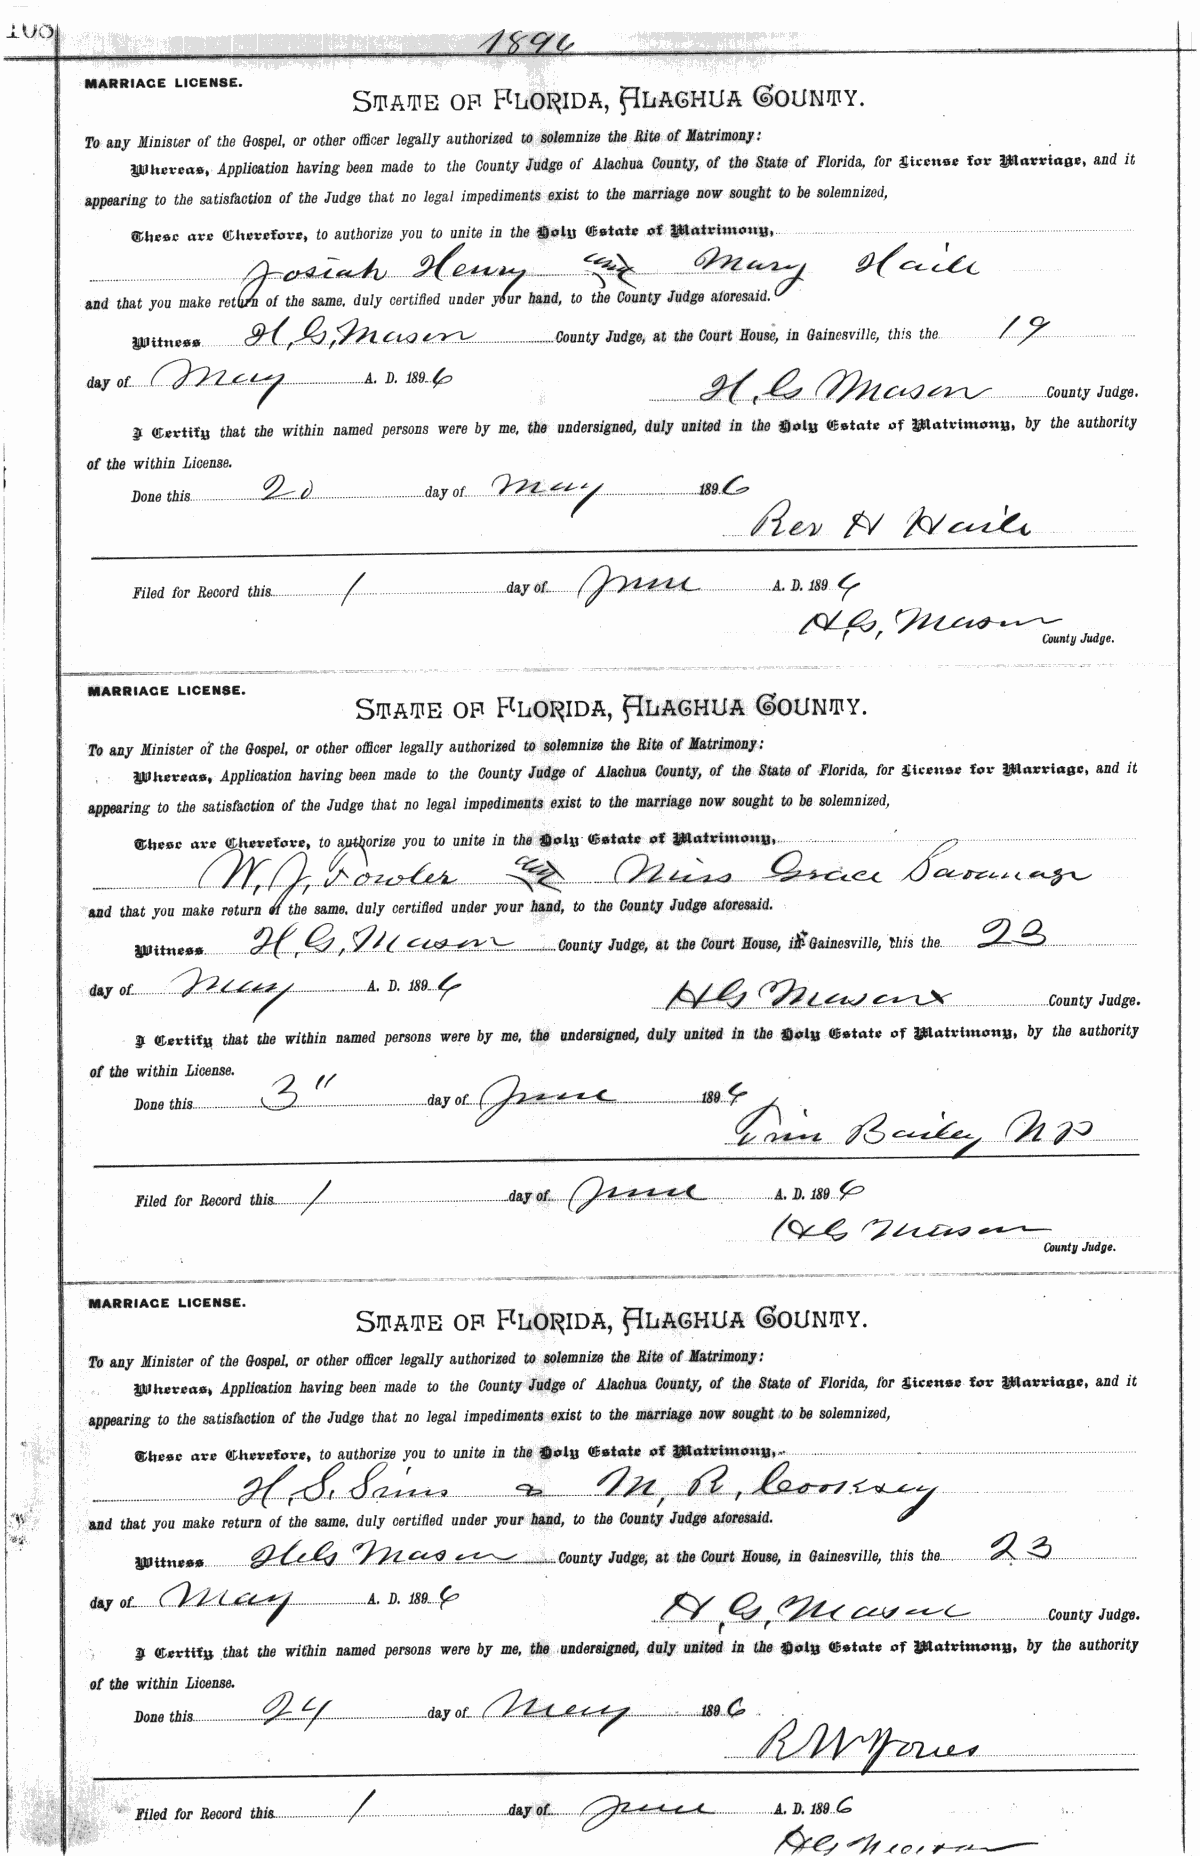 108
1896
MARRIAGE LICENSE.
STATE OF FLORIDA, ALACHUA COUNTY.
To any Minister of the Gospel, or other officer legally authorized to solemnize the Rite of Matrimony:
Whereas, Application having been made to the County Judge of Alachua County, of the State of Florida, for License for Marriage, and it
appearing to the satisfaction of the Judge that no legal impediments exist to the marriage now sought to be solemnized,
These are Therefore, to authorize you to unite in the Holy Estate of Matrimony,
Josiah Henry and Mary Haile
and that you make return of the same, duly certified under your hand, to the County Judge aforesaid.
Witness H. G. Mason County Judge, at the Court House, in Gainesville, this the 19
day of May A. D. 1896
H. G. Mason County Judge.
I Certify that the within named persons were by me, the undersigned, duly united in the Holy Estate of Matrimony, by the authority
of the within License.
Done this 20 day of May 1896
Rev H Haile
Filed for Record this 1 day of June A. D. 1896
H. G. Mason
County Judge.
MARRIAGE LICENSE.
STATE OF FLORIDA, ALACHUA COUNTY.
To any Minister of the Gospel, or other officer legally authorized to solemnize the Rite of Matrimony:
Whereas, Application having been made to the County Judge of Alachua County, of the State of Florida, for License for Marriage, and it
appearing to the satisfaction of the Judge that no legal impediments exist to the marriage now sought to be solemnized,
These are Therefore, to authorize you to unite in the Holy Estate of Matrimony,
W. J. Fowler and Miss Grace
and that you make return of the same, duly certified under your hand, to the County Judge aforesaid.
Witness H. G. Mason County Judge, at the Court House, in Gainesville, this the 23
day of May A. D. 1896
H G Mason County Judge.
I Certify that the within named persons were by me, the undersigned, duly united in the Holy Estate of Matrimony, by the authority
of the within License.
Done this 3" day of June 1896
Bailey N P
Filed for Record this 1 day of June A. D. 1896
H G Mason
County Judge.
MARRIAGE LICENSE.
STATE OF FLORIDA, ALACHUA COUNTY.
To any Minister of the Gospel, or other officer legally authorized to solemnize the Rite of Matrimony:
Whereas, Application having been made to the County Judge of Alachua County, of the State of Florida, for License for Marriage, and it
appearing to the satisfaction of the Judge that no legal impediments exist to the marriage now sought to be solemnized,
These are Therefore, to authorize you to unite in the Holy Estate of Matrimony,
H. S. Sims & M. R. Cooksey
and that you make return of the same, duly certified under your hand, to the County Judge aforesaid.
Witness H G Mason County Judge, at the Court House, in Gainesville, this the 23
day of May A. D. 1896
H. G. Mason County Judge.
I Certify that the within named persons were by me, the undersigned, duly united in the Holy Estate of Matrimony, by the authority
of the within License.
Done this 24 day of May 1896
R W Jones
Filed for Record this 1 day of June A. D. 1896
H G Mason